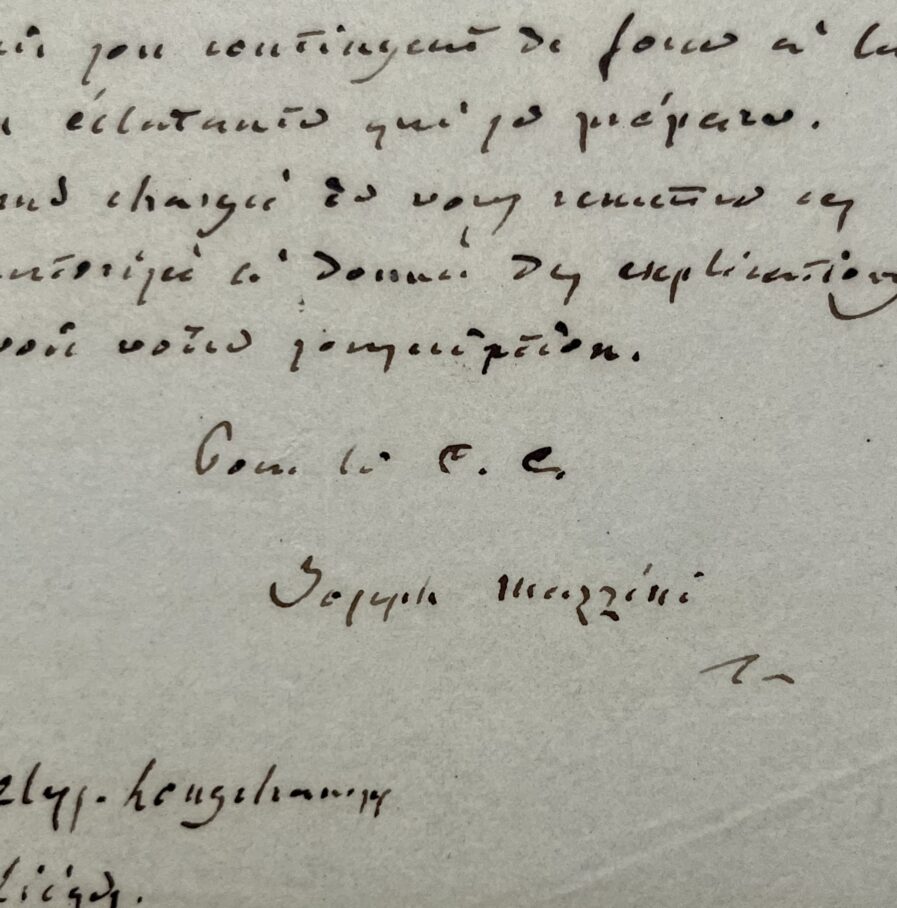 son contingent de force à la
éclatante qui se prépare.
chargé de vous remettre ces
autorisé à donné des explications
voir votre souscription.
Pour le C. C.
Joseph Mazzini
Selys-Longchamps
Liège.